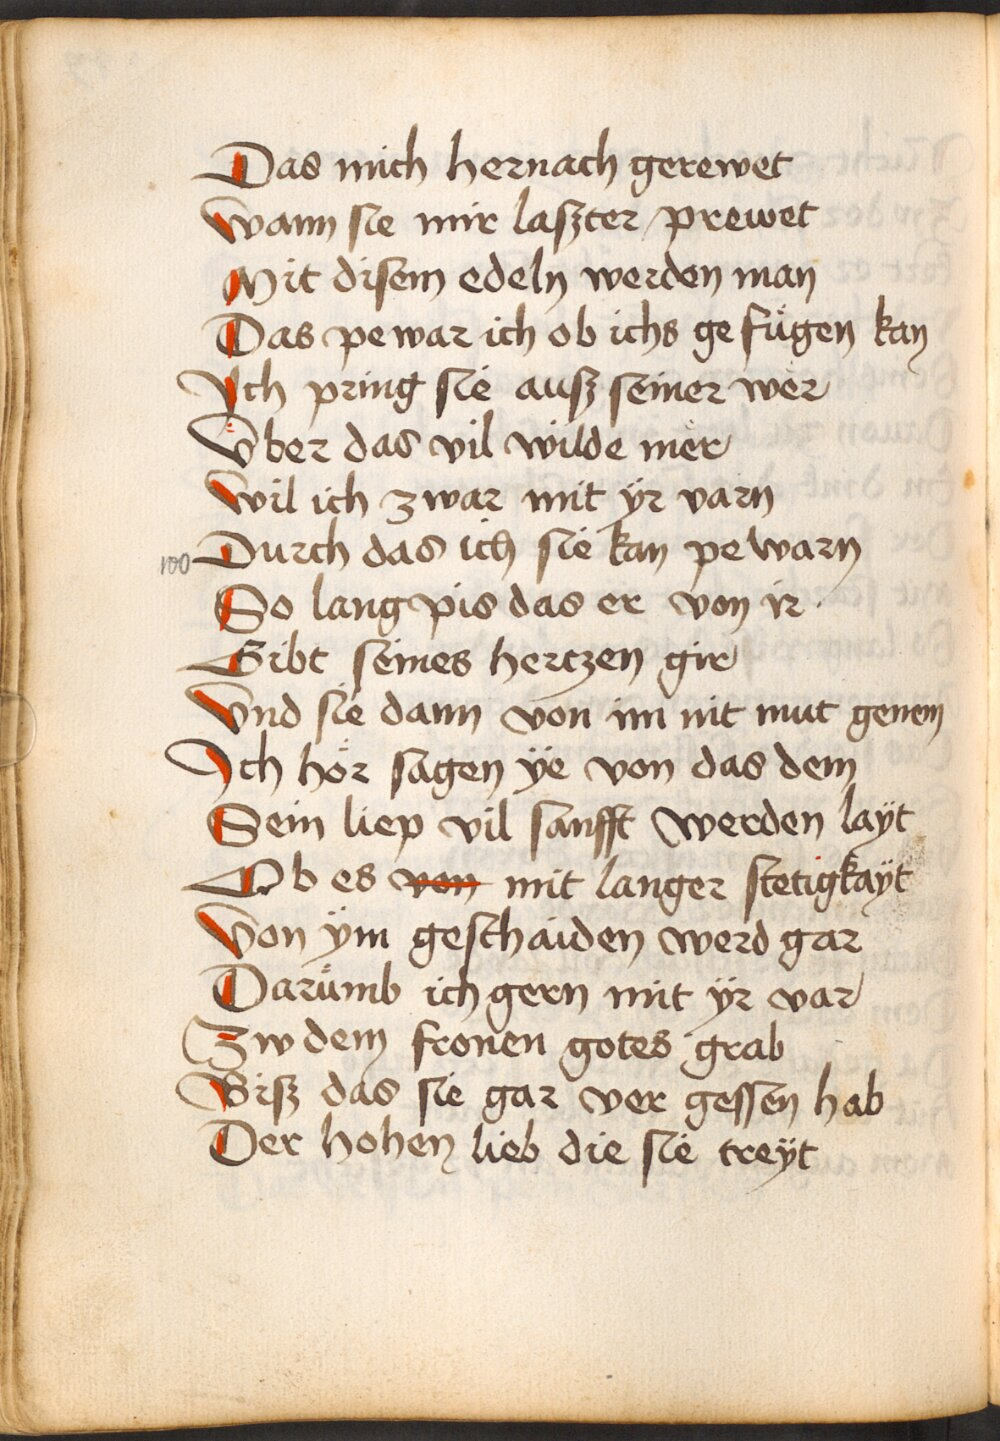 Das mich hernach gerewet
Wann sie mir laszter prewet
Mit disem edeln werden man
Das pewar ich ob ichs gefügen kan
Ich pring sie ausz seiner wër
Vber das vil wilde mër
Wil ich zwar mit ÿr varn
100 Durch das ich sie kan pewarn
So lang pis das er von ir
Gibt seines hertzen gir
Vnd sie dann von im nit mut genem
Ich hör sagen ÿe von das dem
Sein liep vil sanfft werden laÿt
Ob es von mit langer stetigkaÿt
Von ÿm geschaiden werd gar
Darümb ich gern mit ÿr var
Zw dem fronen gotes grab
Bisz das sie gar ver gessen hab
Der hohen lieb die sie treÿt